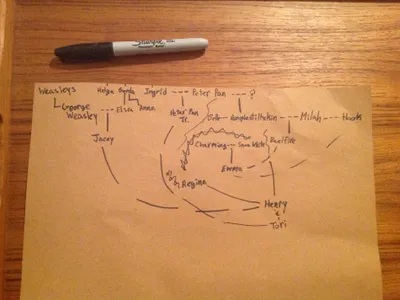 Sharpie
Weasleys Helga Gerda Ingrid --- Peter Pan --- ?
George Weasley --- Elsa Anna Peter Pan Jr. Belle Rumplestiltskin --- Milah --- Hook
Jacey Charming Snow White Baelfire
Emma
Regina
Henry
Tori